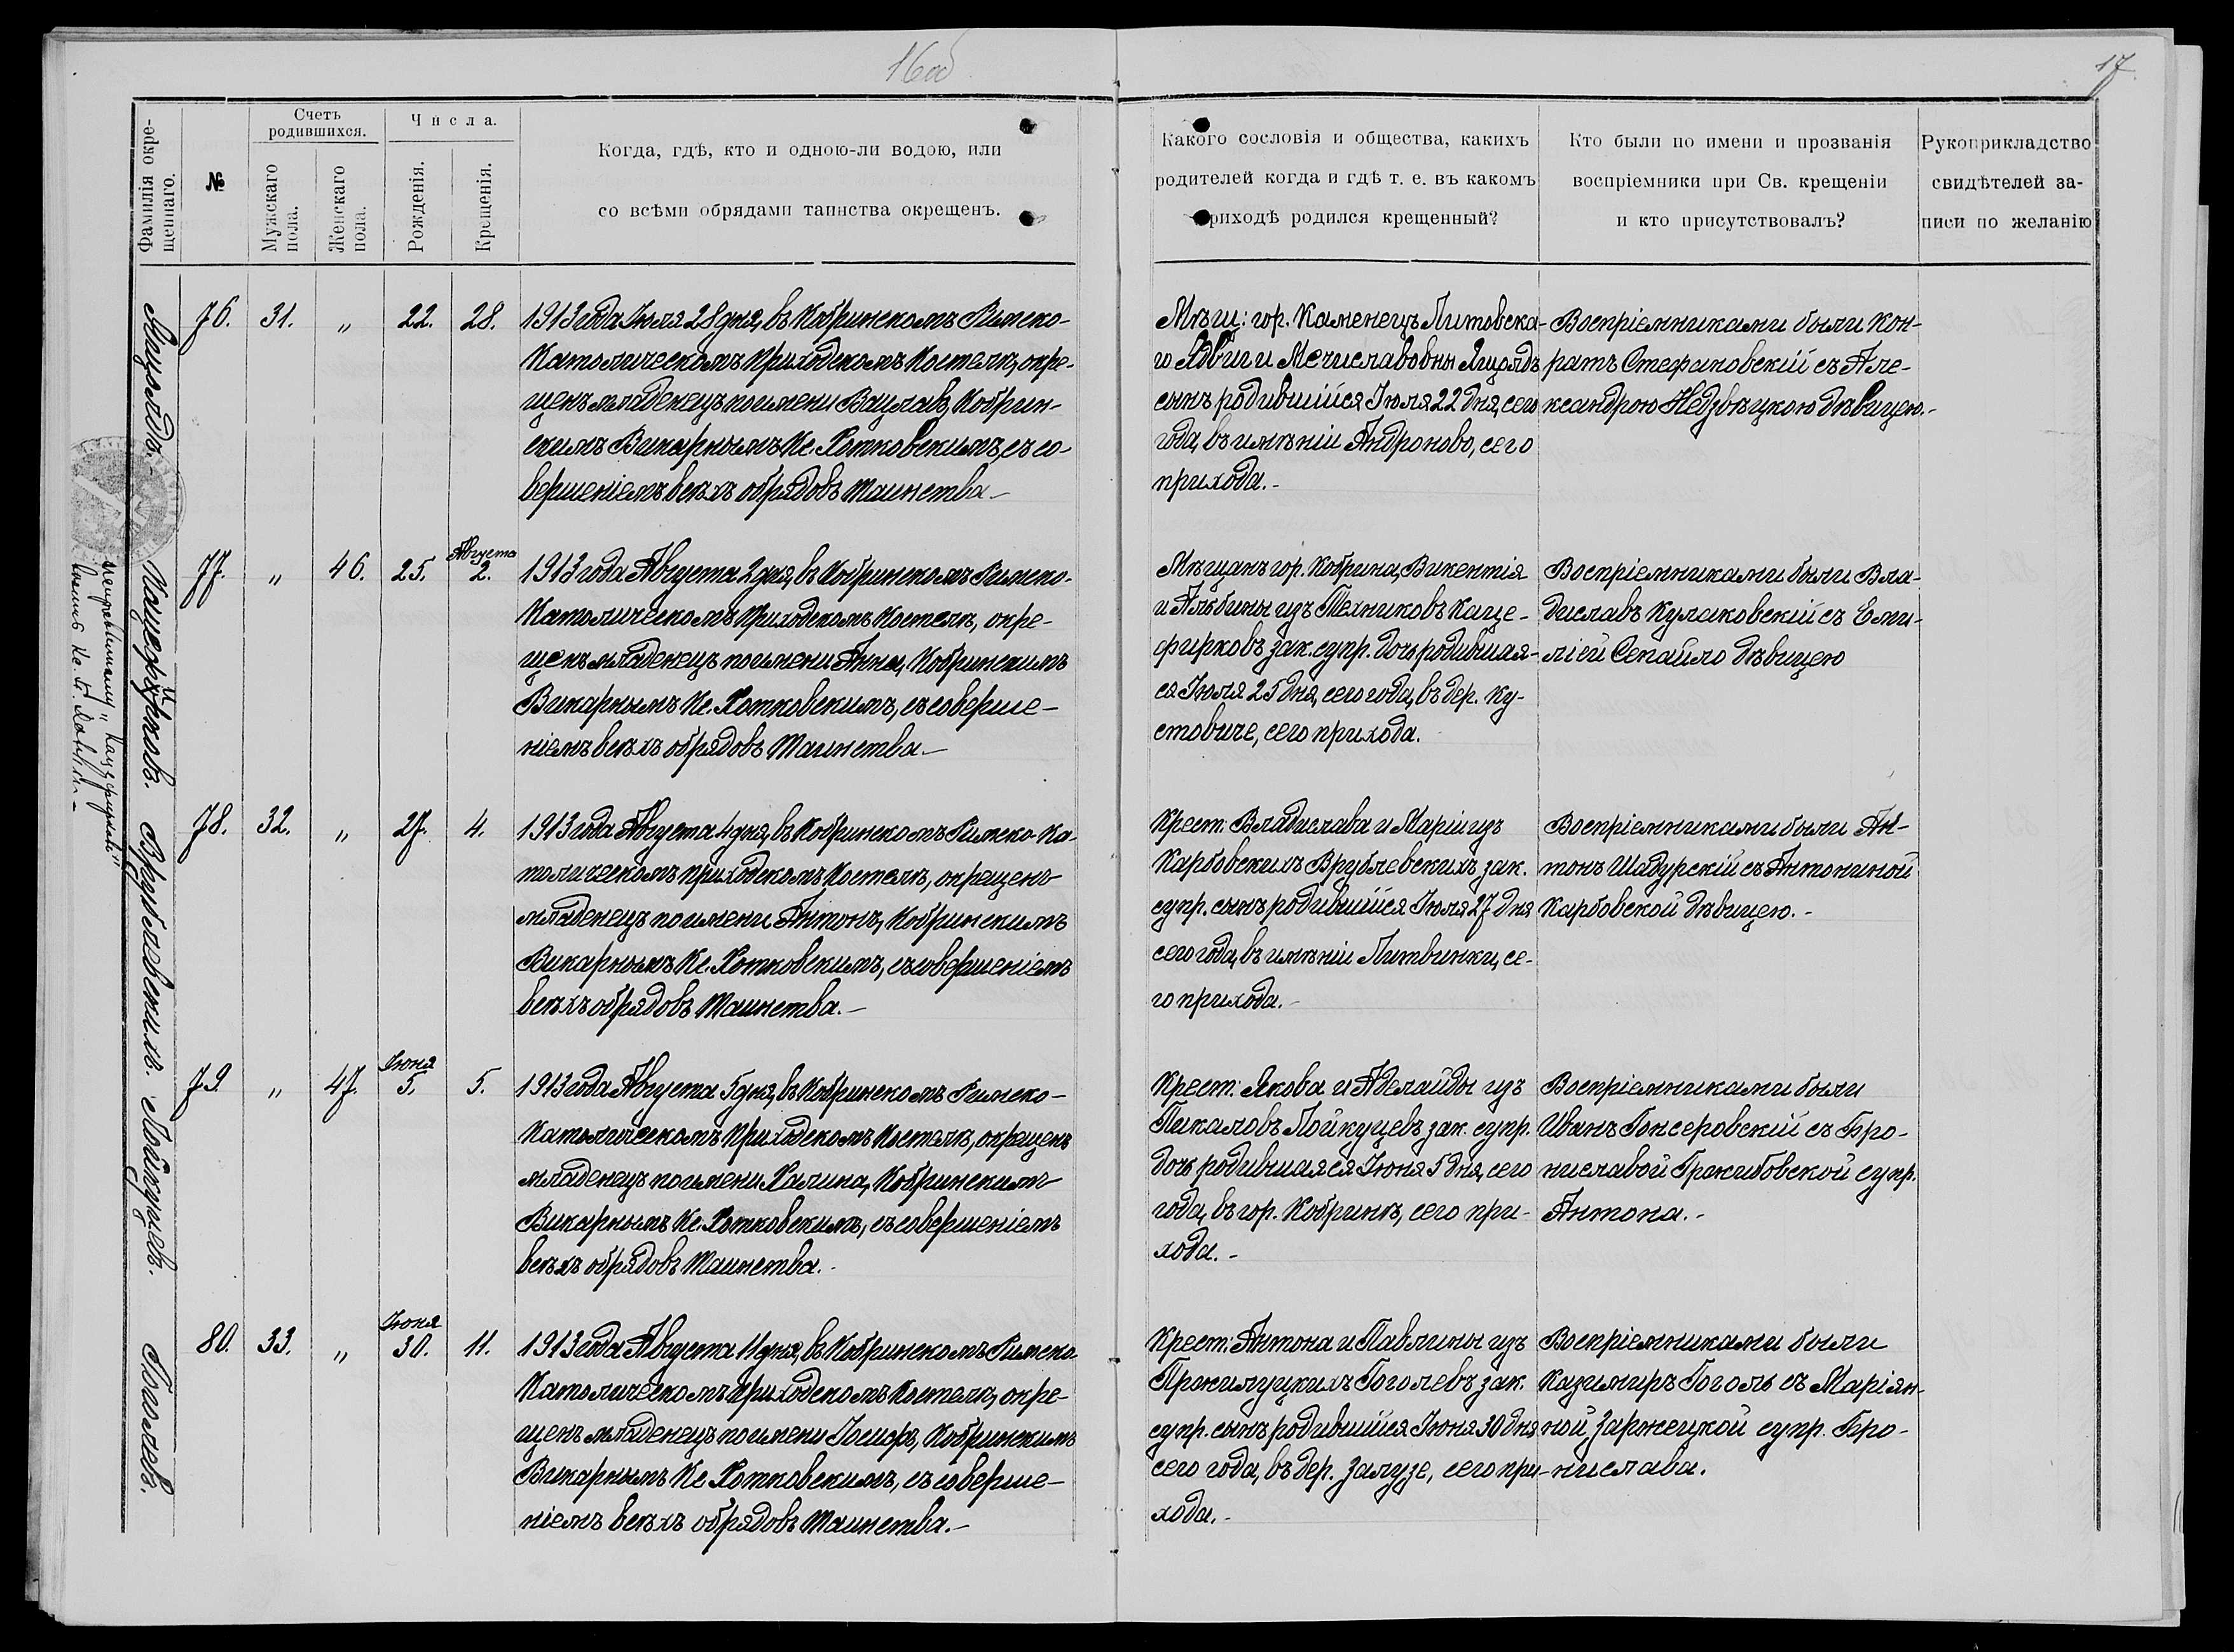 16об
17
Фамилія окре-
щеннаго.
№
Счетъ
родившихся.
Мужскаго
пола.
Женскаго
пола.
Числа.
Рожденія.
Крещенія.
Когда, гдѣ, кто и одною-ли водою, или
со всѣми обрядами таинства окрещенъ.
Какого сословія и общества, какихъ
родителей когда и гдѣ т. е. въ какомъ
приходѣ родился крещенный?
Кто были по имени и прозванія
воспріемники при Св. крещеніи
и кто присутствовалъ?
Рукоприкладство
свидѣтелей за-
писи по желанію
76. 31. „ 22. 28.
1913 года Іюля 28 дня, въ Кобринскомъ Римско-
Католическомъ Приходскомъ Костелѣ, окре-
щенъ младенецъ по имени Вацлавъ, Кобрин-
скимъ Викарнымъ Кс. Хотковскимъ, съ со-
вершеніемъ всѣхъ обрядовъ Таинства.-
Мѣщ: гор. Каменецъ Литовска-
го Ядвиги Мечиславовны Яцолдъ
сынъ родившійся Іюля 22 дня, сего
года, въ имѣніи Андроново, сего
прихода.-
Воспріемниками были Кон-
ратъ Стефановскій съ Але-
ксандрою Недзвѣцкою дѣвицею.-
Кацефирковъ.
77. „ 46. 25. Августа 2.
1913 года Августа 2 дня, въ Кобринскомъ Римско-
Католическомъ Приходскомъ Костелѣ, окре-
щенъ младенецъ по имени Анна, Кобринскимъ
Викарнымъ Кс. Хотковскимъ, съ соверше-
ніемъ всѣхъ обрядовъ Таинства.-
Мѣщанъ гор. Кобрина, Викентія
и Альбины изъ Техниковъ Каце-
фирковъ зак. супр. дочь родившая-
ся Іюля 25 дня, сего года, въ дер. Ку-
стовиче, сего прихода.
Воспріемниками были Вла-
диславъ Кулаковскій съ Еми-
ліей Сепайло дѣвицею
Врублевскихъ.
78. 32. „ 27. 4.
1913 года Августа 4 дня, въ Кобринскомъ Римско-Ка-
толическомъ приходскомъ Костелѣ, окрещенъ
младенецъ по имени Антонъ, Кобринскимъ
Викарнымъ Кс. Хотковскимъ, съ совершеніемъ
всѣхъ обрядовъ Таинства.-
Крест: Владислава и Маріи изъ
Карбовскихъ Врублевскихъ зак.
супр. сынъ родившійся Іюля 27 дня
сего года, въ имѣніи Литвинки, се-
го прихода.-
Воспріемниками были Ан-
тонъ Шадурскій съ Антониной
Карбовской дѣвицею.-
Лойкуцевъ.
79. „ 47. Іюня 5. 5.
1913 года Августа 5 дня, въ Кобринскомъ Римско-
Католическомъ Приходскомъ Костелѣ, окрещенъ
младенецъ по имени Халина, Кобринскимъ
Викарнымъ Кс. Хотковскимъ, съ совершеніемъ
всѣхъ обрядовъ Таинства.-
Крест: Якова и Аделайды изъ
Пикаловъ Лойкуцевъ зак. супр.
дочь родившаяся Іюня 5 дня, сего
года, въ гор. Кобринѣ, сего при-
хода.-
Воспріемниками были
Иванъ Гонсеровскій съ Бро-
ниславой Гракибовской супр.
Антона.-
Гоголевъ.
80. 33. „ Іюня 30. 11.
1913 года Августа 11 дня, въ Кобринскомъ Римско-
Католическомъ приходскомъ Костелѣ, окре-
щенъ младенецъ по имени Іосифъ, Кобринскимъ
Викарнымъ Кс. Хотковскимъ, съ соверше-
ніемъ всѣхъ обрядовъ Таинства.-
Крест: Антона и Павлины изъ
Прокилуцкихъ Гоголевъ зак.
супр. сынъ родившійся Іюня 30 дня
сего года, въ дер. Залузе, сего при-
хода.-
Воспріемниками были
Казимиръ Гоголь съ Маріян-
ной Заржецкой супр. Бро-
нислава.